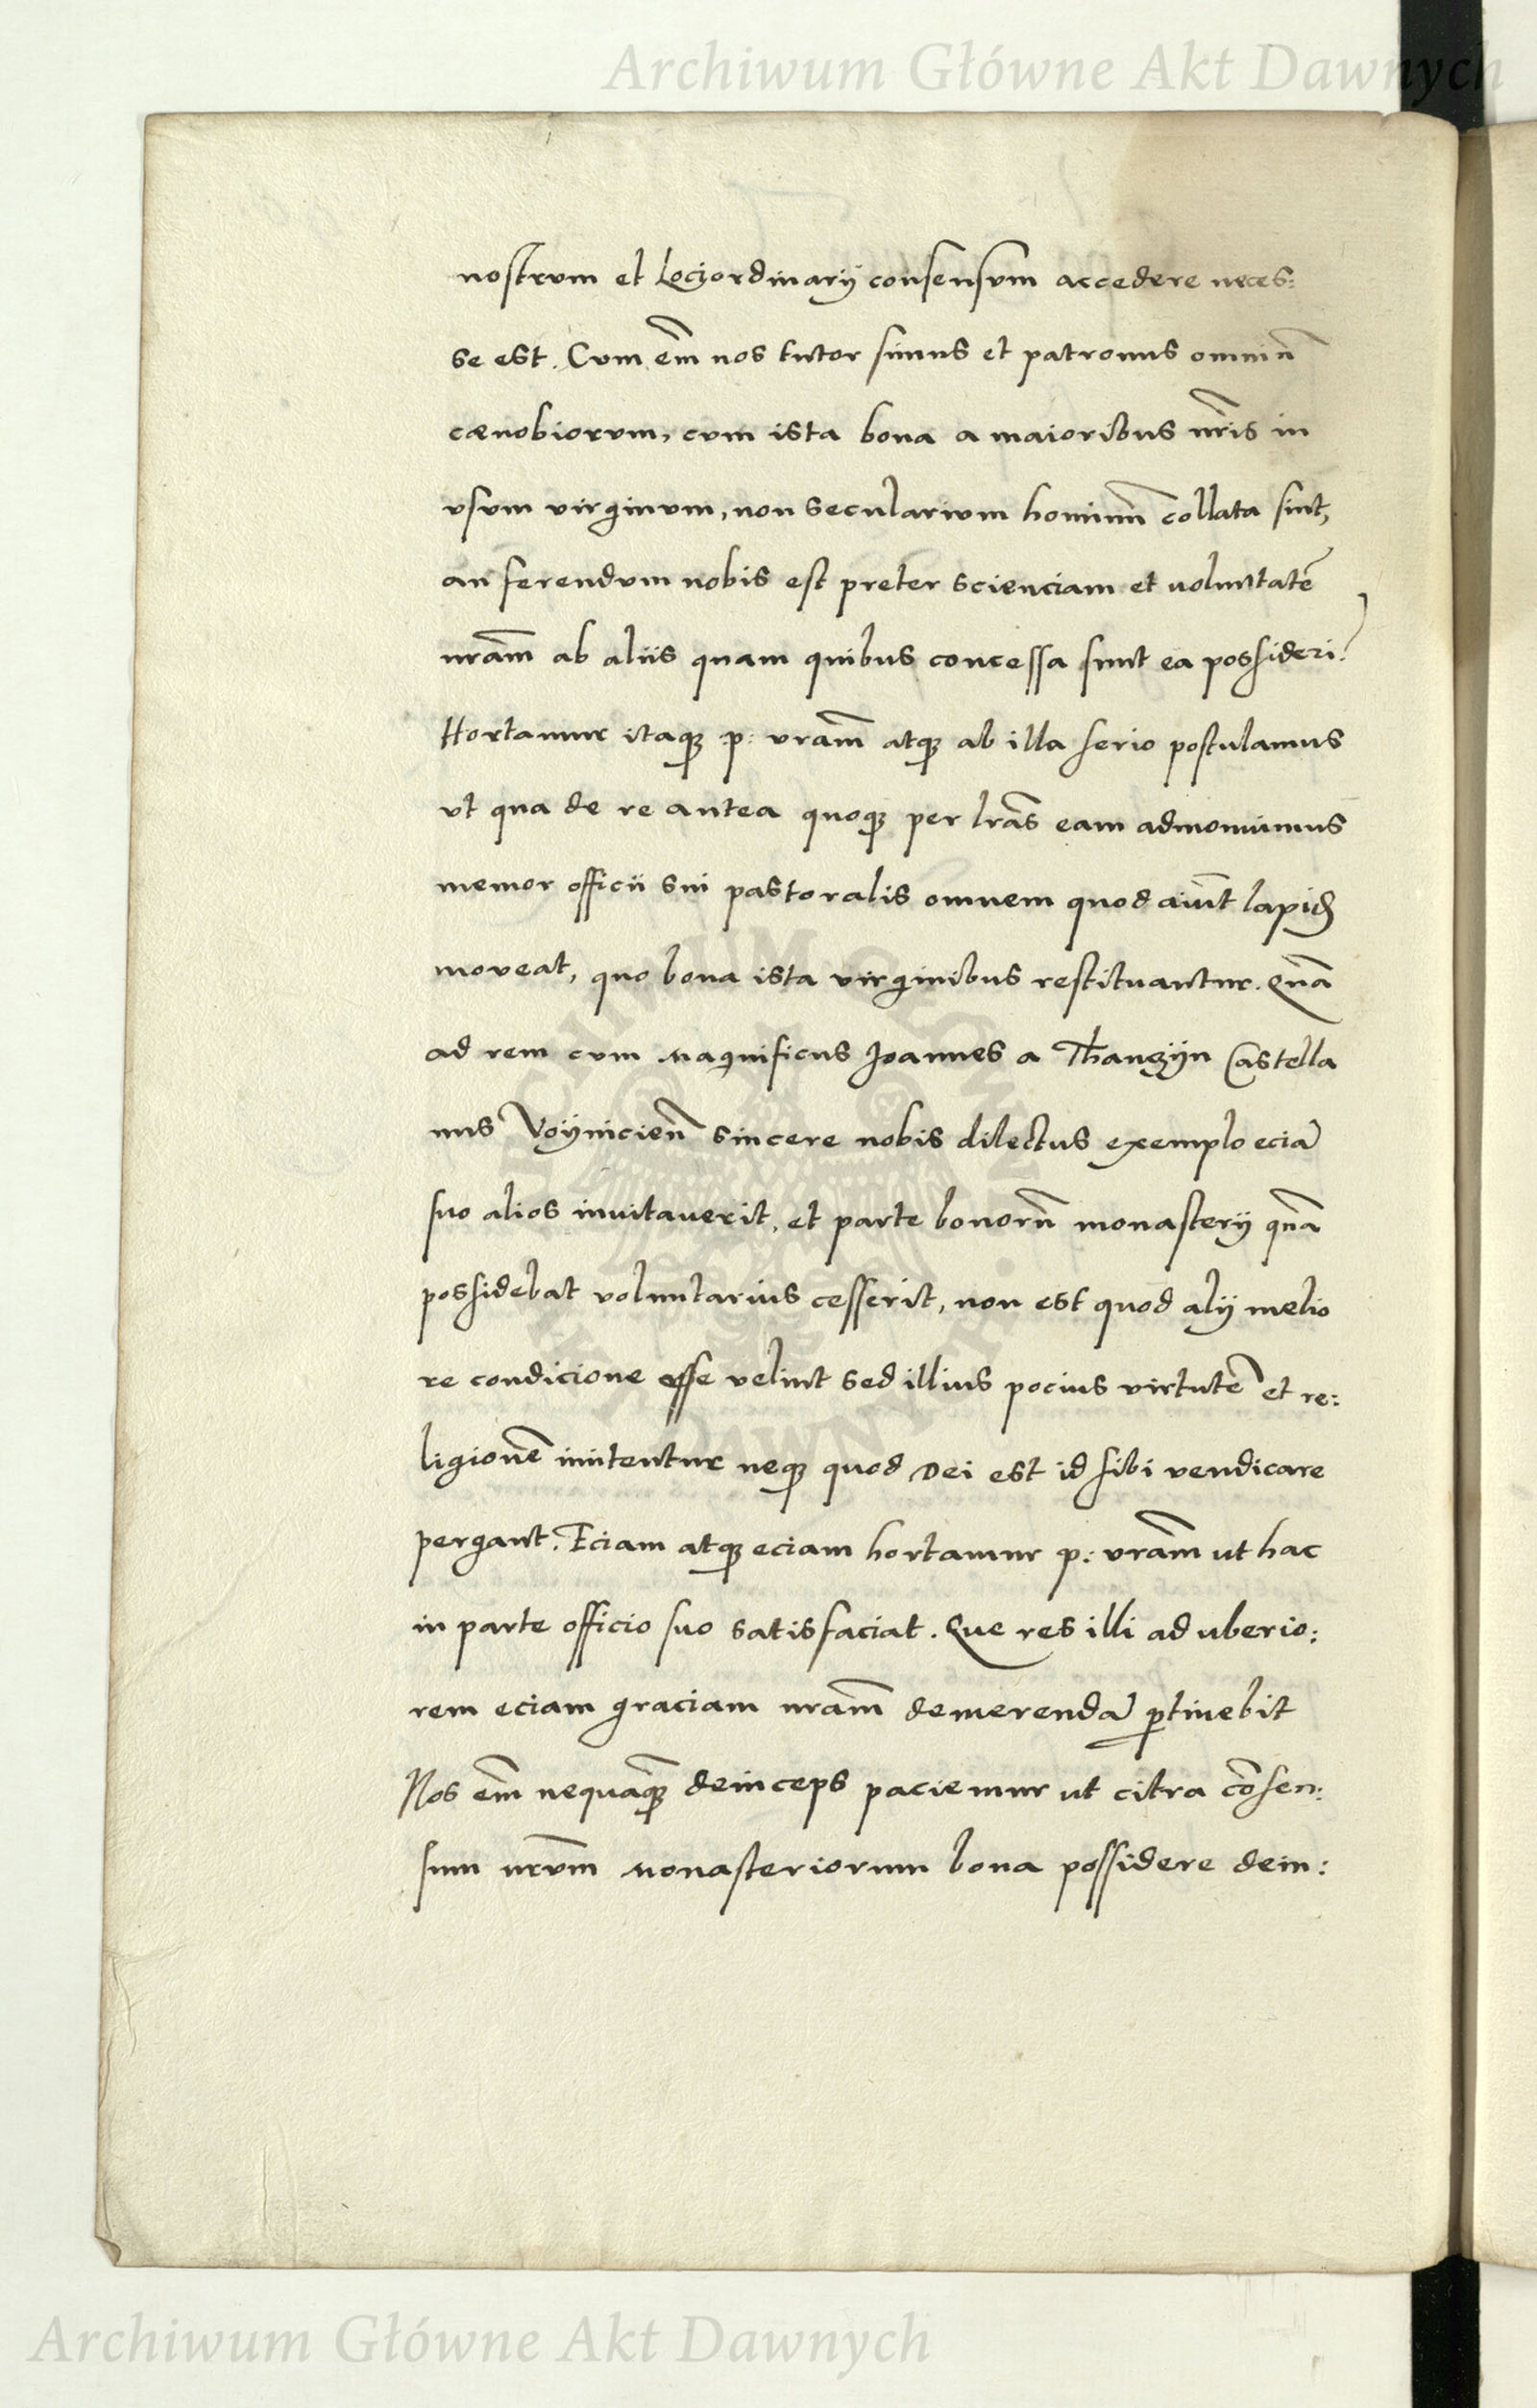 Archiwum Główne Akt Dawnych
nostrum et Loci ordinarÿ consensum accedere neces:
se est. Cum em̃ nos tutor simus et patronus omniũ
cænobiorum, cum ista bona a maioribus nr̃is in
vsum virginum, non secularium hominũ collata sint,
an ferendum nobis est preter scienciam et voluntatẽ
nr̃am ab aliis quam quibus concessa sunt ea possideri?
Hortamur itaqꝫ p: vr̃am atqꝫ ab illa serio postulamus
vt qua de re antea quoqꝫ per lr̃as eam admonuimus
memor officii sui pastoralis omnem quod aiũt lapidẽ
moveat, quo bona ista virginibus restituantur. Quã
ad rem cum Magnificus Joannes a Thanczÿn Castella
nus Voÿnicieñ sincere nobis dilectus exemplo eciã
suo alios invitaverit, et parte bonorũ monasterÿ quã
possidebat voluntarius cesserit, non est quod alÿ melio
re condicione esse velint sed illius pocius virtutẽ et re:
ligionẽ imitentur neqꝫ quod Dei est id sibi vendicare
pergant. Eciam atqꝫ eciam hortamur p: vr̃am ut hac
in parte officio suo satisfaciat. Que res illi ad uberio:
rem eciam graciam nr̃am demerendã ꝑtinebit
Nos em̃ nequaqꝫ̃ deinceps paciemur ut citra cõsen:
sum nr̃um Monasteriorum bona possidere dein:
ARCHIWUM GŁÓWNE AKT DAWNYCH
Archiwum Główne Akt Dawnych